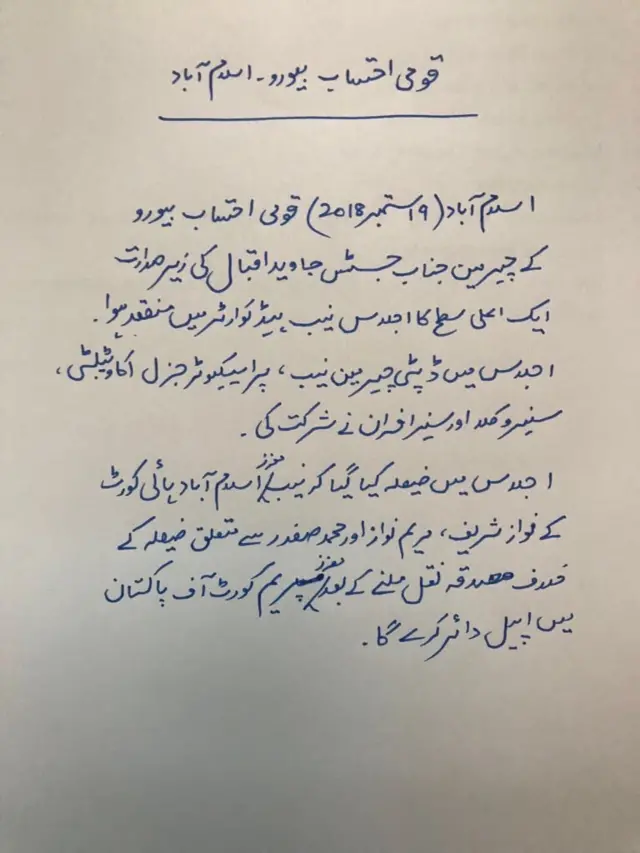 قومی احتساب بیورو - اسلام آباد
اسلام آباد (19 ستمبر 2018) قومی احتساب بیورو
کے چیرمین جناب جسٹس جاوید اقبال کی زیر صدارت
ایک اعلی سطح کا اجلاس نیب ہیڈ کوارٹر میں منعقد ہوا۔
اجلاس میں ڈپٹی چیرمین نیب، پراسیکیوٹر جنرل اکاونٹیبلٹی،
سینیر وکلاء اور سینیر افسران نے شرکت کی۔
اجلاس میں فیصلہ کیا گیا کہ نیب معزز اسلام آباد ہائی کورٹ
کے نواز شریف، مریم نواز اور محمد صفدر سے متعلق فیصلہ کے
خلاف مصدقہ نقل ملنے کے بعد معزز سپریم کورٹ آف پاکستان
میں اپیل دائر کرے گا۔